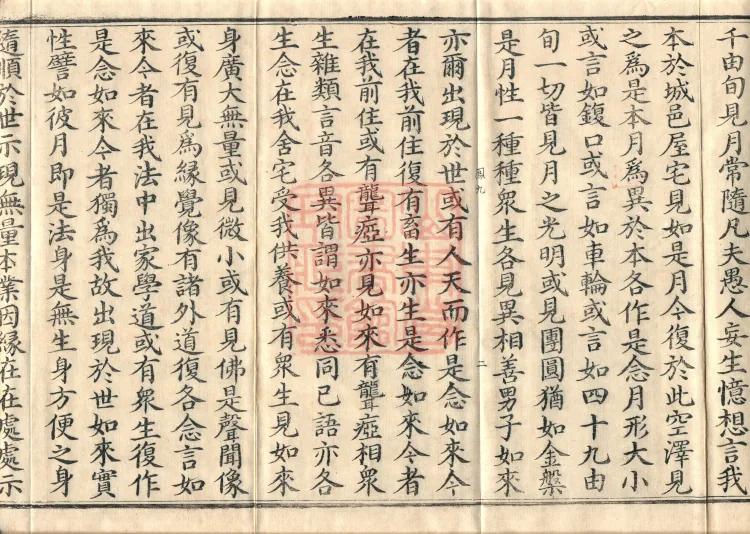 千由旬見月常隨凡夫愚人妄生憶想言我
本於城邑屋宅見如是月今復於此空澤見
之爲是本月爲異於本各作是念月形大小
或言如鍑口或言如車輪或言如四十九由
旬一切皆見月之光明或見團圓猶如金槃
是月性一種種衆生各見異相善男子如來
鳳九
二
亦爾出現於世或有人天而作是念如來今
者在我前住復有畜生亦生是念如來今者
在我前住或有聾瘂亦見如來有聾瘂相衆
生雜類言音各異皆謂如來悉同已語亦各
生念在我舍宅受我供養或有衆生見如來
身廣大無量或見微小或有見佛是聲聞像
或復有見爲緣覺像有諸外道復各念言如
來今者在我法中出家學道或有衆生復作
是念如來今者獨爲我故出現於世如來實
性譬如彼月即是法身是無生身方便之身
隨順於世示現無量本業因緣在在處處示